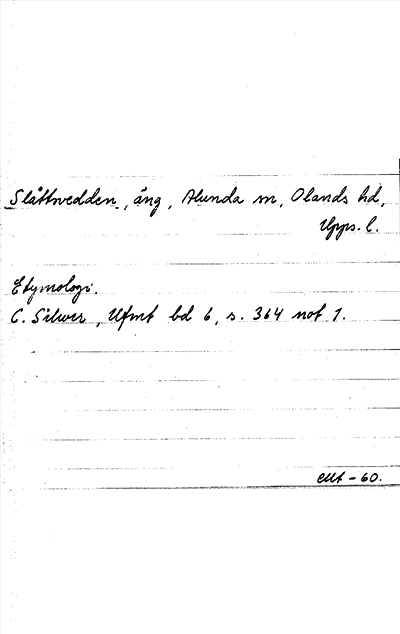 Slåttvedden, äng, Alunda sn, Olands hd,
Upps. l.
Etymologi.
C. Silwer, Ufmt bd 6, s. 364 not 1.
-60.